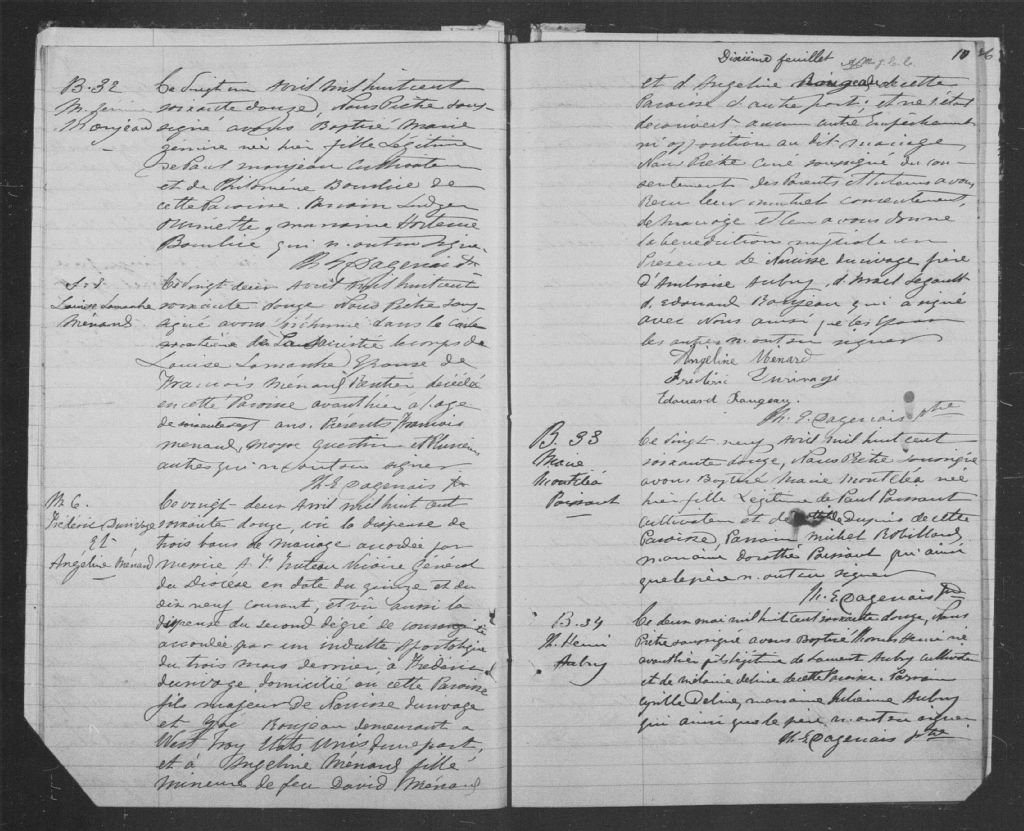 B. 32
M.
Monjeau
Ce vingt un Avril mil huit cent
soixante douze, Nous Prêtre sous-
signé avons Baptisé Marie
née hier fille Légitime
de Paul monjeau Cultivateur
et de Philomène Bourlier de
cette Paroisse. Parrain Ludger
marraine Hortense
Bourlier qui n'ont su signer
H. E. Dagenais Ptre
Louise Lamarche
Ménard
Ce vingt deux Avril mil huit cent
soixante douze Nous Prêtre sous-
signé avons Inhumé dans le
cimetière de le corps de
Louise Lamarche Epouse de
François Ménard Rentier décédée
en cette Paroisse avant hier à l'age
de ans. Présents François
menard, Moyse et Plusieurs
autres qui n'ont su signer
H. E. Dagenais Ptre
M. 6.
Frédéric Durivage
Et
Angéline Ménard
Ce vingt-deux Avril mil huit cent
soixante douze, vu la dispense de
trois bans de mariage accordée par
messire A. F. Truteau Vicaire Général
du Diocèse en date du quinze et du
dix neuf courant, et vu aussi la
dispense du second dégré de
accordée par un indulte Apostolique
du trois mars dernier, à Frédéric
durivage, domicilié en cette Paroisse
fils majeur de Narcisse durivage
et Bonjeau demeurant à
West Troy Etats Unis d'une part,
et à Angéline Ménard fille
mineure de feu David Ménard
Dixième feuillet
10
et d'Angéline de cette
Paroisse d'autre part; et ne s'étant
découvert aucun autre Empêchement
ni opposition au dit mariage
Nous Prêtre curé soussigné du con-
sentement des Parents et tuteurs avons
Reçu leur mutuel consentement
de mariage et leur avons donné
la bénédiction nuptiale en
Présence de Narcisse durivage frère
d'Ambroise Aubry, d'Israel Legault
d'Edouard Bonjeau qui a signé
avec Nous ainsi que les Epoux
les autres n'ont su signer
Angéline Ménard
Frédéric Durivage
Edouard
H. E. Dagenais Ptre
B. 33
Marie
Montcléa
Poissant
Ce vingt neuf Avril mil huit cent
soixante douze, Nous Prêtre soussigné
avons Baptisé Marie Montcléa née
hier fille Légitime de Paul Poissant
Cultivateur et de Dupuis de cette
Paroisse, Parrain michel Robillard,
marraine dorothée Poissant qui ainsi
que le père n'ont su signer
H. E. Dagenais Ptre
B. 34
Th. Henri
Aubry
Ce deux mai mil huit cent soixante douze, Nous
Prêtre soussigné avons Baptisé Thomas Henri né
avant hier fils légitime de Laurent Aubry Cultivateur
et de mélanie deline de cette Paroisse. Parrain
Cyrille Deline, marraine Julienne Aubry
qui ainsi que le père n'ont su signer
H. E. Dagenais Ptre